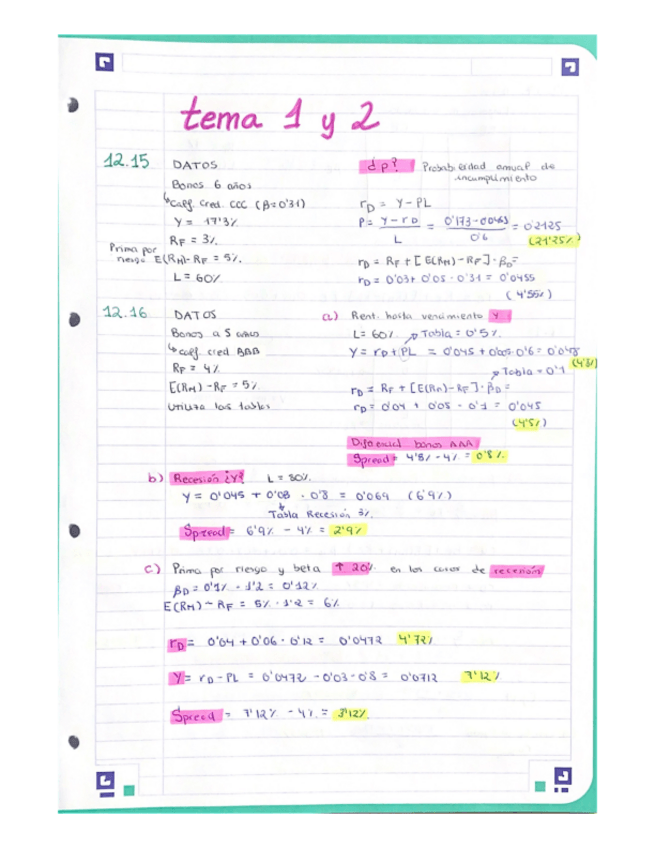 tema 1 y 2
12.15 DATOS
Bonos 6 años
↳ Calif. Cred. CCC (β=0'31)
Y = 17'3%
RF = 3%
Prima por riesgo E(RM)-RF = 5%
L = 60%
¿p? Probabilidad anual de incumplimiento
rD = Y - PL
P = (Y - rD) / L = / 0'6 = 0'2125
(21'25%)
rD = RF + [E(RM)-RF]·βD =
rD = 0'03 + 0'05 · 0'31 = 0'0455
(4'55%)
12.16 DATOS
Bonos a 5 años
↳ calif. cred BBB
RF = 4%
E(RM)-RF = 5%
Utiliza las tablas
a) Rent. hasta vencimiento Y
L = 60% Tabla = 0'5%
Y = rD + PL = 0'045 + 0'005·0'6 = 0'048
(4'8%)
Tabla = 0'1
rD = RF + [E(RM)-RF]·βD =
rD = 0'04 + 0'05 · 0'1 = 0'045
(4'5%)
Diferencial bonos AAA
Spread = 4'8% - 4% = 0'8%
b) Recesión ¿Y? L = 80%
Y = 0'045 + 0'03 · 0'8 = 0'069 (6'9%)
Tabla Recesión 3%
Spread = 6'9% - 4% = 2'9%
c) Prima por riesgo y beta ↑ 20% en los casos de recesión
βD = 0'1% · 1'2 = 0'12%
E(RM) - RF = 5% · 1'2 = 6%
rD = 0'04 + 0'06 · 0'12 = 0'0472 4'72%
Y = rD - PL = 0'0472 - 0'03 · 0'8 = 0'0712 7'12%
Spread = 7'12% - 4% = 3'12%